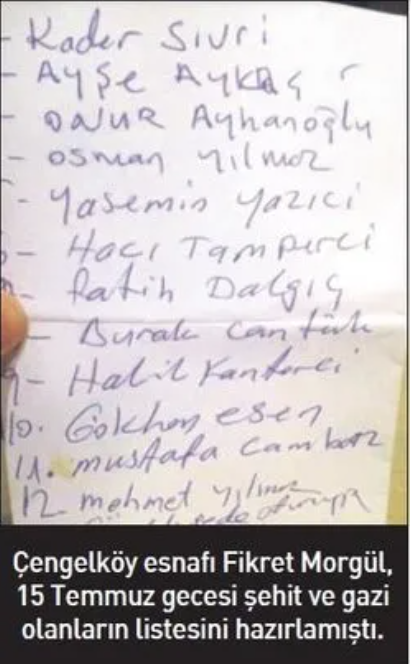 - Kader Sıvri
- Ayşe Aykaç
- ONUR Ayhanoğlu
- osman yılmaz
- Yasemin yazıcı
- Hacı Tamperci
- fatih Dalgıç
- Burak cantürk
9- Halil Kanterci
10. Gökhan esen
11. mustafa cambaz
12 mehmet yılmaz
Çengelköy esnafı Fikret Morgül,
15 Temmuz gecesi şehit ve gazi
olanların listesini hazırlamıştı.